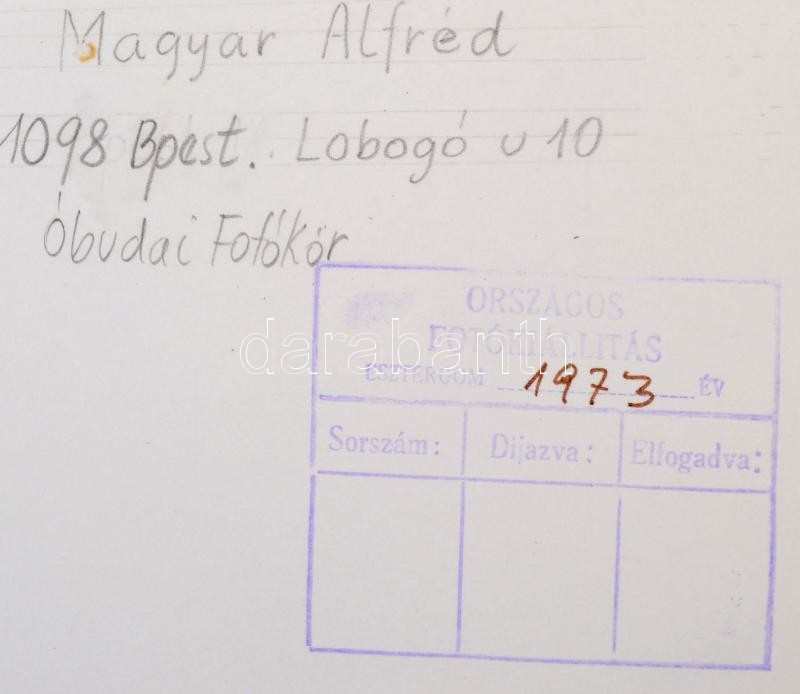 Magyar Alfréd
1098 Bpest. Lobogó u 10
Óbudai Fotókör
ORSZÁGOS
FOTÓKIÁLLITÁS
ESZTERGOM 1973 ÉV
Sorszám: Dijazva: Elfogadva:
darabanth